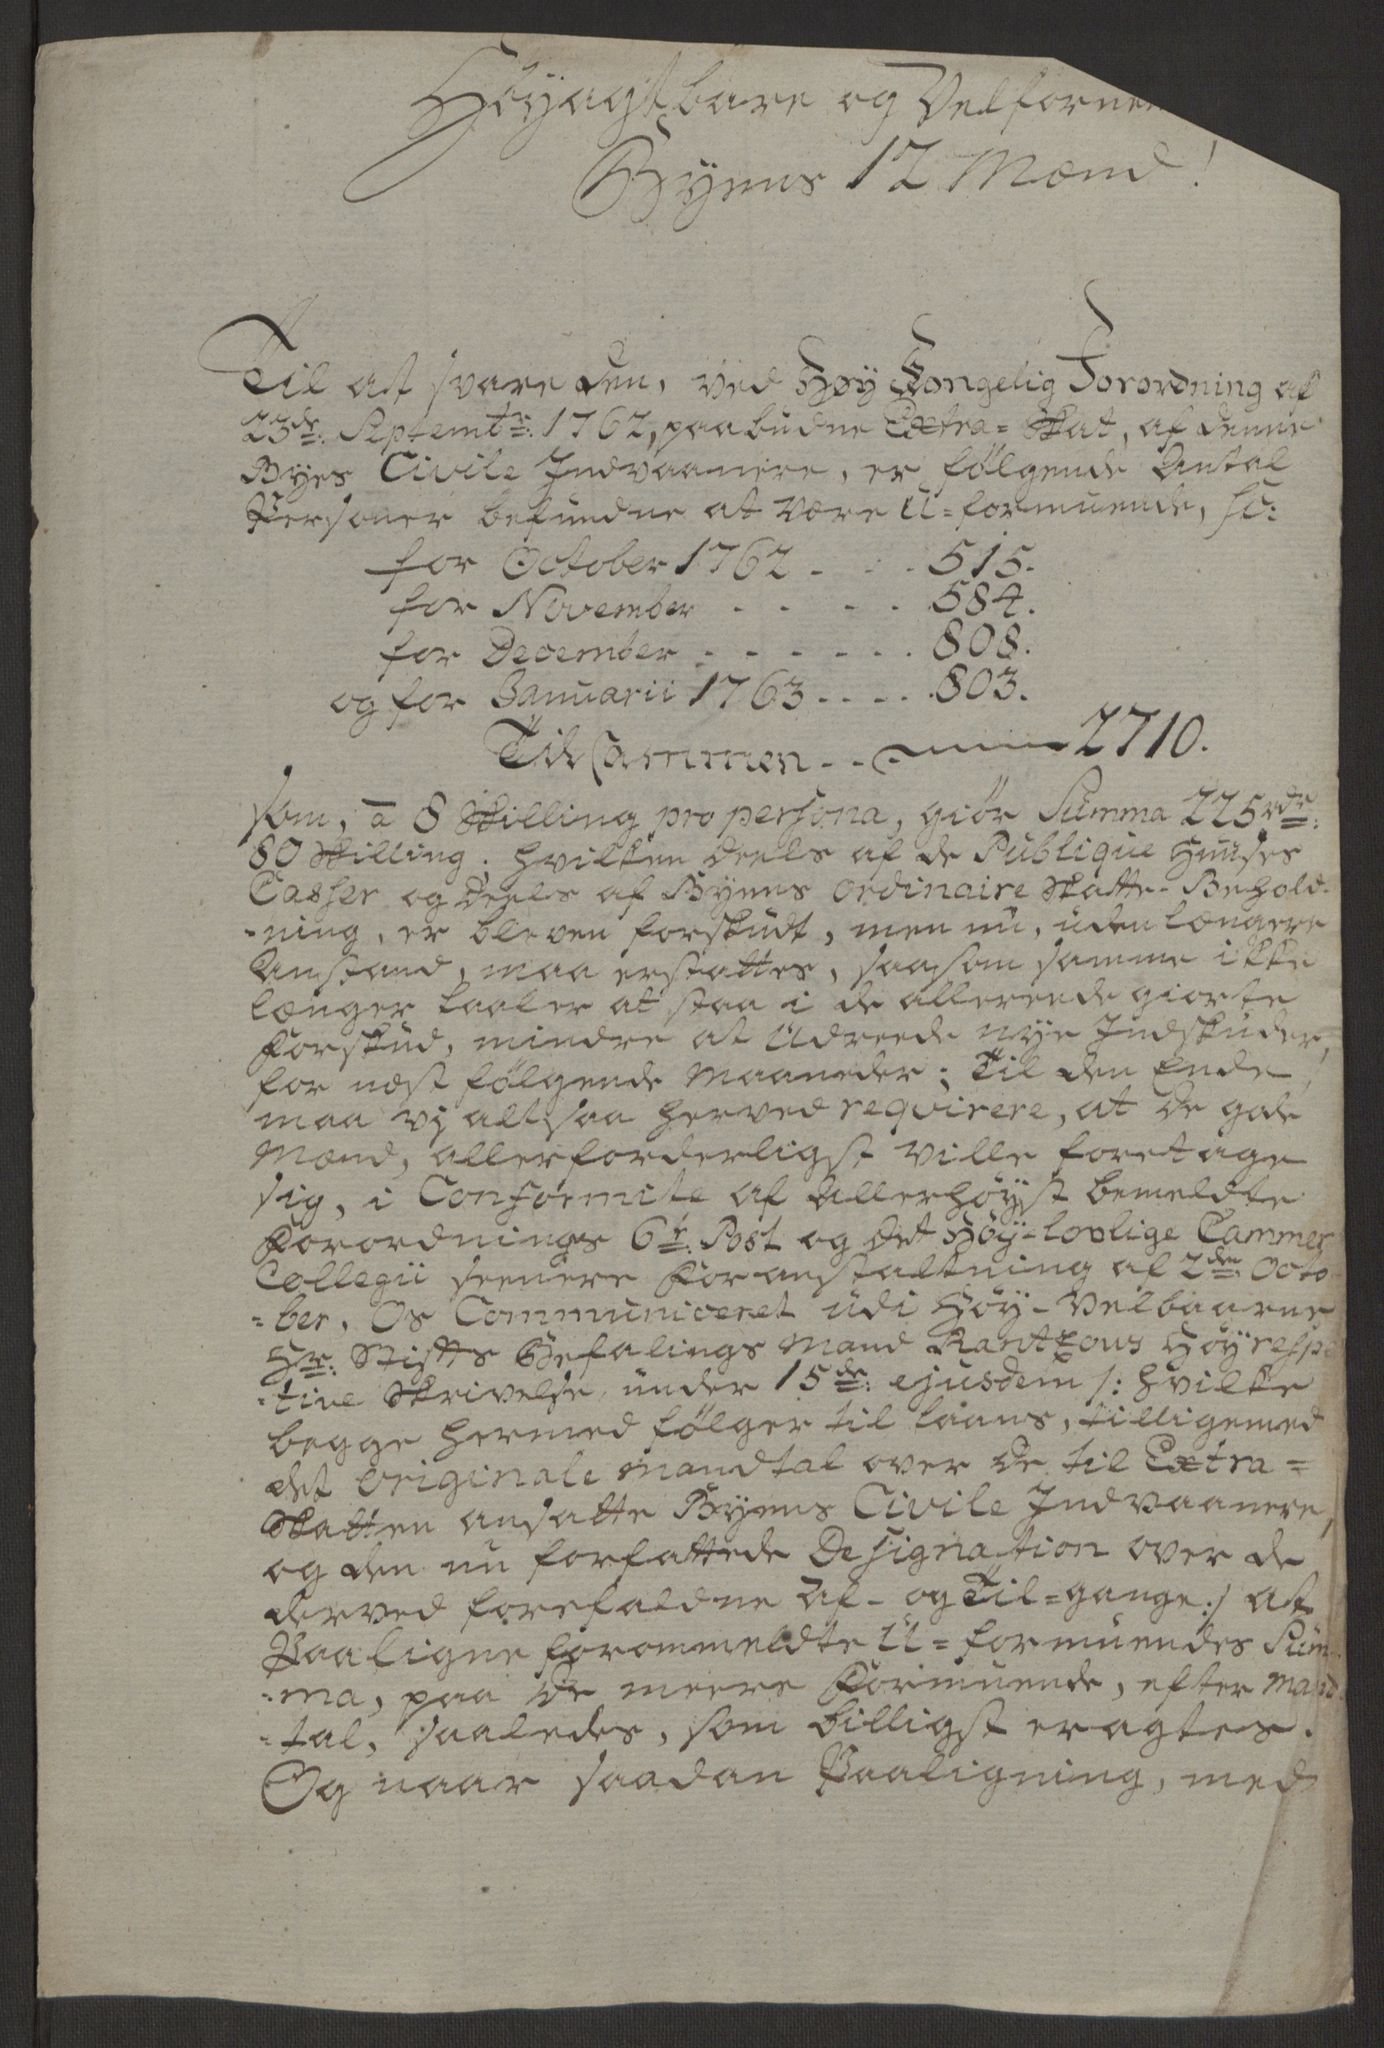 Höyagtbare og Velforne
Byens 12 Mænd!
Til at svare den, ved Høy Kongelig Forordning af
23de: Septembr: 1762, paabudne Extra=Skat, af denne
Byes Civile Indvaanere, er følgende Antal
Personer befundne at være U=formuende, sc:
for October 1762 . . . 515.
for November . . . . . 584.
for December . . . . . . 808.
og for Januarii 1763 . . . . 803.
Tilsammen . . 2710.
som, a 8 Skilling pro persona, giør Summa 225 rdr:
80 Skilling; hvilken deels af de Publique Huuses
Casser og deels af Byens ordinaire Skatte-Behold-
-ning, er bleven forskudt, men nu, uden længere
Anstand, maa erstattes, saasom samme ikke
længer taaler at staa i de allereede giorte
Forskud, mindre at Udreede nye Indskuder,
for næst følgende Maaneder; Til den Ende
maa vj altsaa herved reqvirere, at de gode
Mænd, allerforderligst ville foretage
sig, i Conformite af Allerhöyst bemeldte
Forordnings 6te: Post og det Höy-lovlige Cammer
Collegii seenere Foranstaltning af 2den Octo
=ber. Os Communiceret udi Höy-Velbaarne
Hr: Stifts Befalings Mand Rantzous Höyrespe
=tive Skrivelse under 15de: ejusdem /: hvilke
begge hermed følger til laans, tilligemed
det originale Mandtal over de til Extra=
Skatten ansatte Byens Civile Indvaanere,
og den nu forfattede Designation over de
derved forefaldne Af- og Til=gange :/ at
Paaligne forommeldte U=formuendes Sum
=ma, paa de meere Formuende, efter Mand
=tal, saaledes, som billigst eragtes.
Og naar saadan Paaligning, med